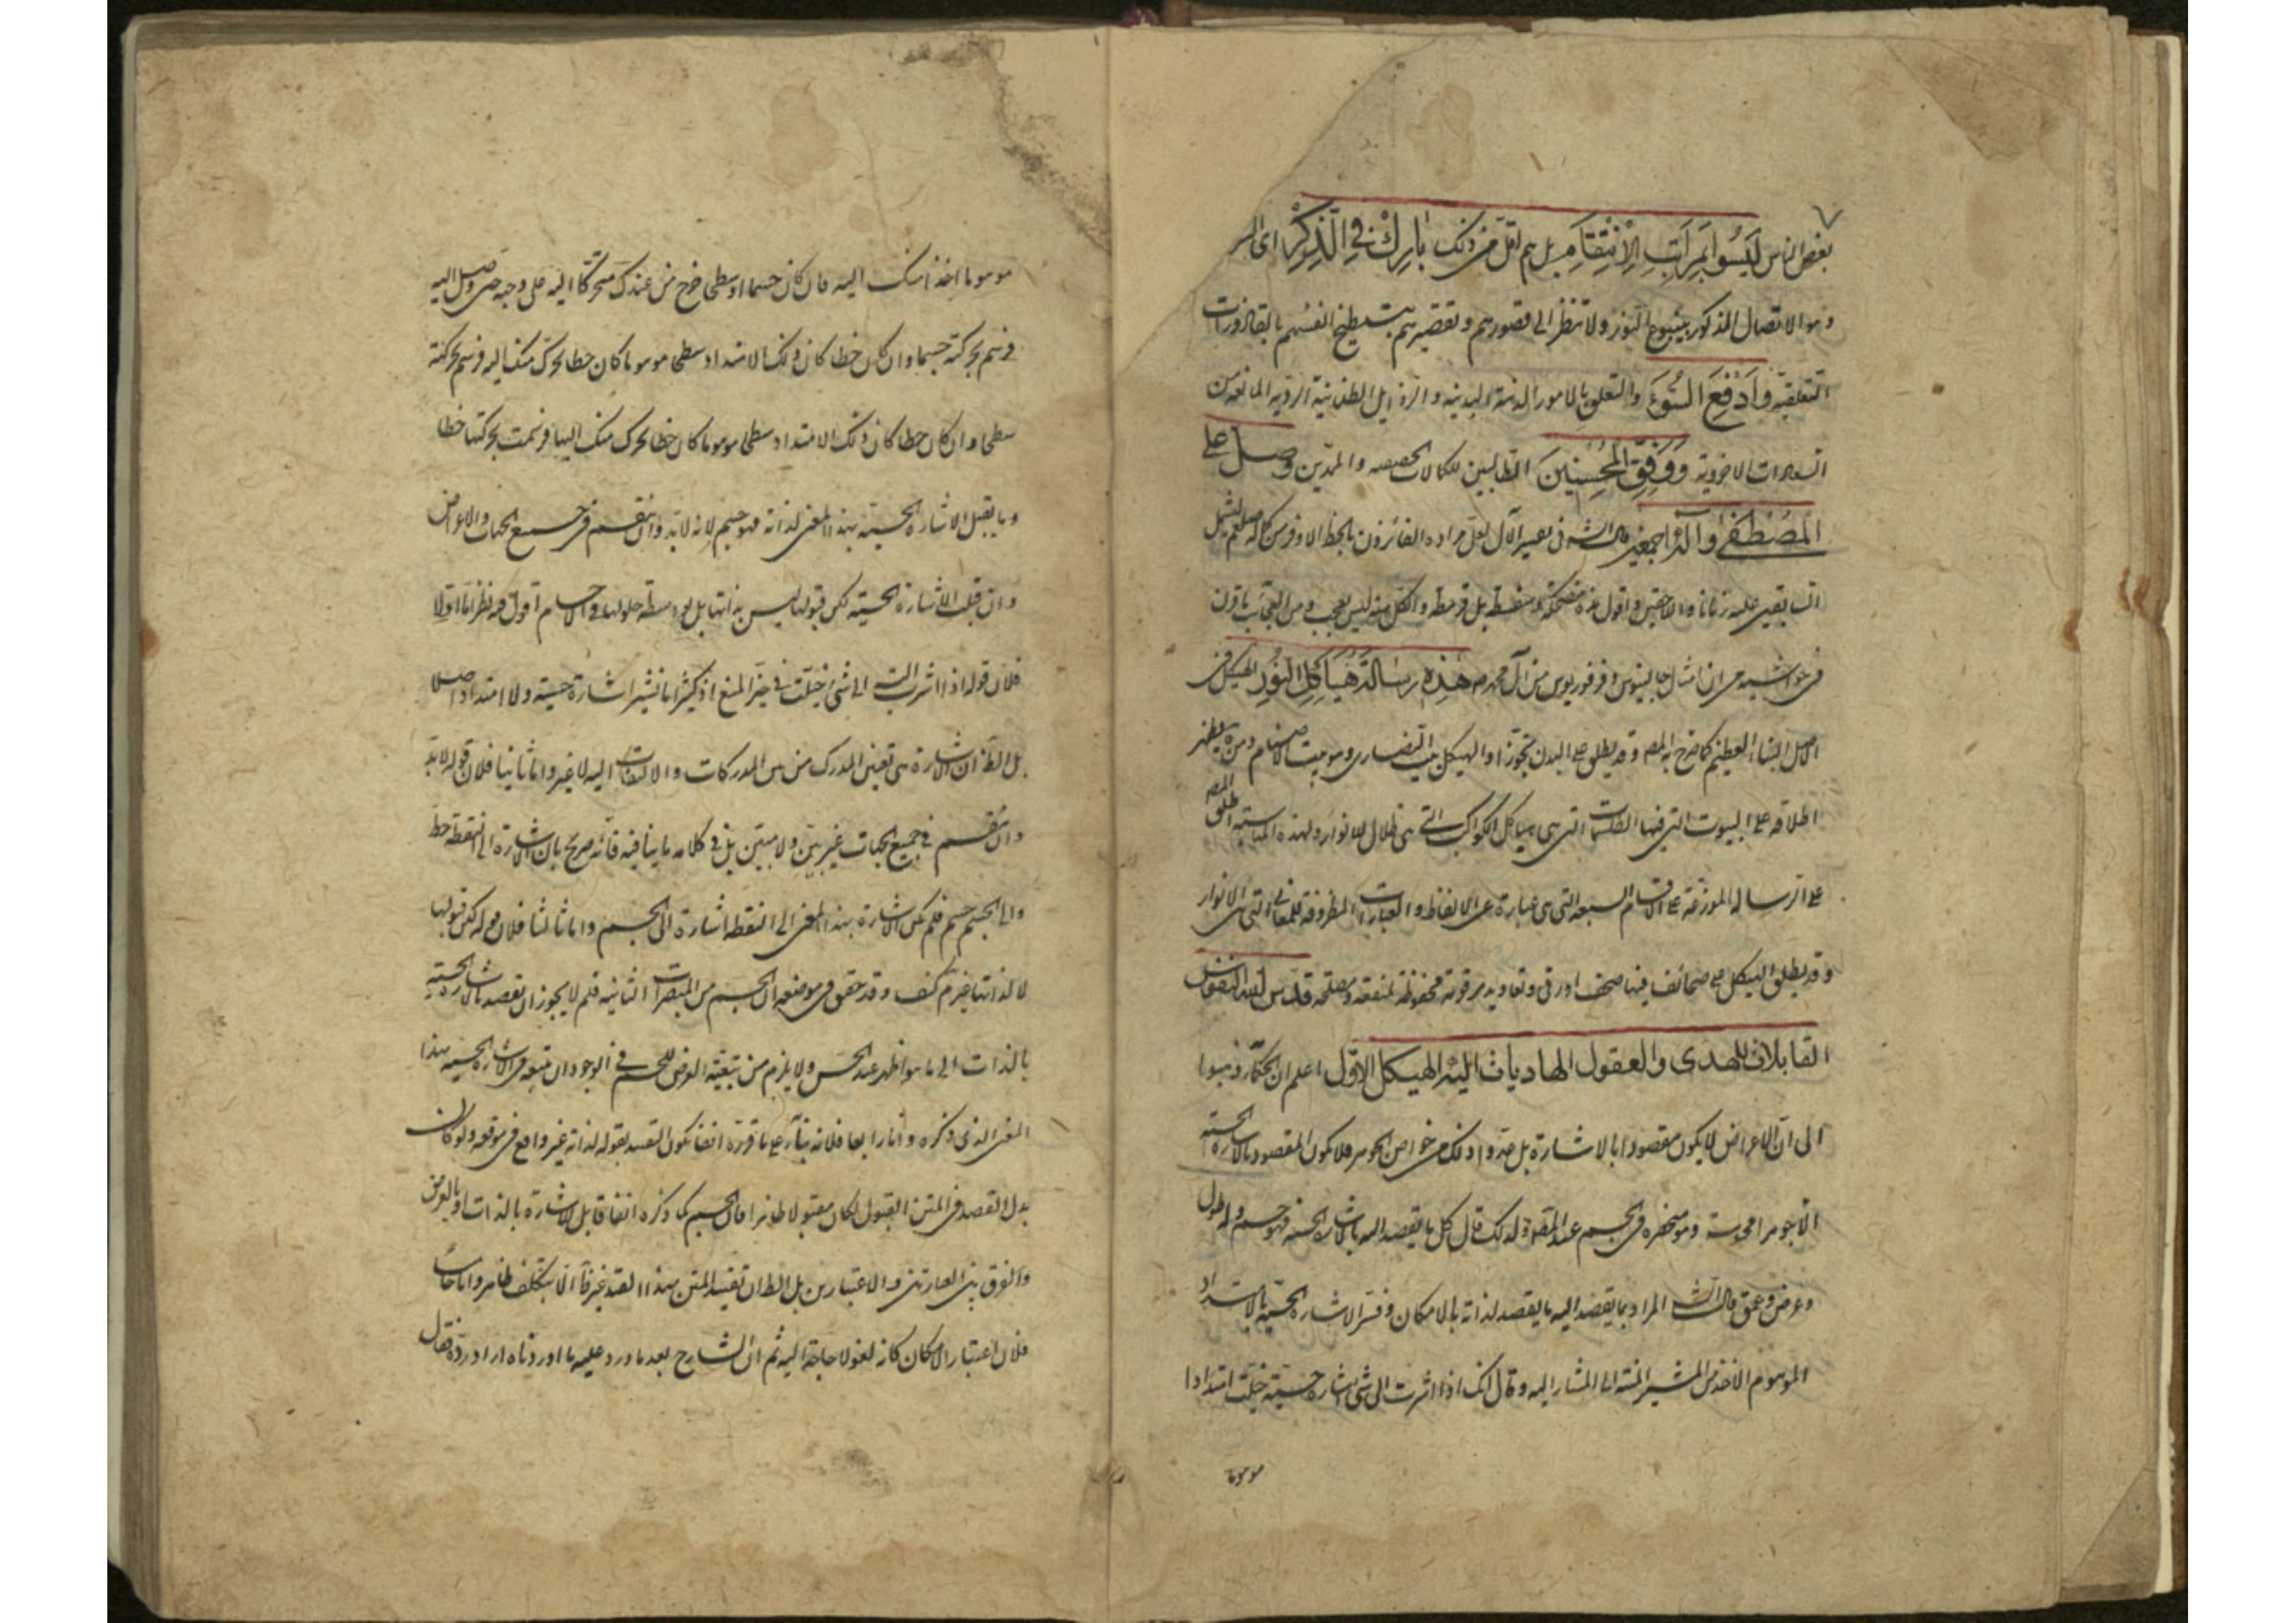 ٧
بعض الناس ليسوا بمراتب الانتقام بل هم اقل من ذلك بارك في الذكر اى
وهو الاتصال المذكور بينبوع النور ولا تنظر الى قصورهم وتقصيرهم انفسهم بالقاذورات
وادفع السوء والتعلق بالامور البدنية و المانعة من
السعادات الاخروية ووفق المحسنين الطالبين للكمالات و وصل على
المصطفى وآله اجمعين قال الش في تفسير الآل لعل مراده الفائزون بالحظ الاوفر من كماله صلعم
زمانا و اللاحقين واقول هذه بل و الكل منه ليس بعجب ومن العجاب
ان امثال جالينوس وفرفوريوس من آل محمد هذه رسالة هياكل النور الهيكل في
الاصل البناء العظيم كما صرح به المصـ وقد يطلق على البدن تجوزا والهيكل بيت النصارى وهو بيت الاصنام ومن ثمة يظهر
اطلاقه على البيوت التي فيها الطلسمات التي هي هياكل الكواكب التي هي ظلال للانوار ولهذه المناسبة اطلق المصـ
على الرسالة الموزعة على الاقسام السبعة التي هي عبارة عن الالفاظ والعبارات المظروفة للمعاني التي هي الانوار
وقد يطلق الهيكل على صحائف فيها صحف اورقى وتعاويذ مرقومة محفوظة لمنفعة ومصلحة قدس الله النفوس
القابلات للهدى والعقول الهاديات اليه الهيكل الاول اعلم ان الحكماء ذهبوا
الى ان الاعراض لا يكون مقصودا بالاشارة بل من خواص الجوهر فلا يكون المقصود بالاشارة الحسية
الا جوهرا وهو منحصر في الجسم عند المصـ فلذلك قال كل ما يقصد اليه بالاشارة الحسية فهو جسم وله طول
وعرض وعمق قال الش المراد بما يقصد اليه ما يقصد لذاته بالامكان وفسر الاشارة الحسية بالامتداد
الموهوم الاخذ من المشير المنتهي الى المشار اليه وقال انك اذا اشرت الى شئ اشارة حسية خيلت امتدادا
موهوما
موهوما اخذا منك اليه فان كان جسما او سطحا خرج من عندك متحركا اليه على وجه حتى وصل اليه
فرسم بحركته جسما وان كان خطا كان ذلك الامتداد سطحا موهوما كان خطا تحرك منك اليه فرسم بحركته
سطحا وان كان خطا كان ذلك الامتداد سطحا موهوما كان خطا تحرك منك اليها فرسمت بحركتها خطا
وما يقبل الاشارة الحسية بهذا المعنى لذاته فهو جسم لانه لابد وان ينقسم في جميع الجهات والاعراض
وان قبلت الاشارة الحسية لكن قبولها ليس بذاتها بل بواسطة حلولها في الاجسام اقول فيه نظر اما اولا
فلان قوله اذا اشرت الى شئ خيلت في حيز المنع اذ كثيرا ما نشير اشارة حسية ولا امتداد اصلا
بل الظ ان الاشارة هي تعيين المدرك من بين المدركات والالتفات اليه لا غير واما ثانيا فلان قوله لابد
وان ينقسم في جميع الجهات غير بين ولا مبين بل في كلامه ما ينافيه فانه صرح بان الاشارة الى النقطة خط
والى الجسم جسم فلم يكن الاشارة بهذا المعنى الى النقطة اشارة الى الجسم واما ثالثا فلان قوله لكن قبولها
لا لذاتها غير تم كيف وقد حقق في موضعه ان الجسم من المبصرات الثانية فلم لا يجوز ان يقصد بالاشارة الحسية
بالذات الى ما هو اظهر عند الحس ولا يلزم من تبعية العرض للجسم في الوجود ان يتبعه في الاشارة الحسية بهذا
المعنى الذي ذكره واما رابعا فلانه بناء على ما قرره انفا يكون التقييد بقوله لذاته غير واقع في موقعه ولو كان
بدل القصد في المتن القبول لكان مقبولا ظاهرا فان الجسم كما ذكره انفا قابل للاشارة بالذات او بالعرض
والفرق بين العبارتين الاعتبارين بل الظ ان تقييد المتن بهذا القيد الا بتكلف ظاهر واما خامسا
فلان اعتبار الامكان كانه لغو لا حاجة اليه ثم ان الشارح بعد ما ورد عليه ما اوردناه اراد رده فقال